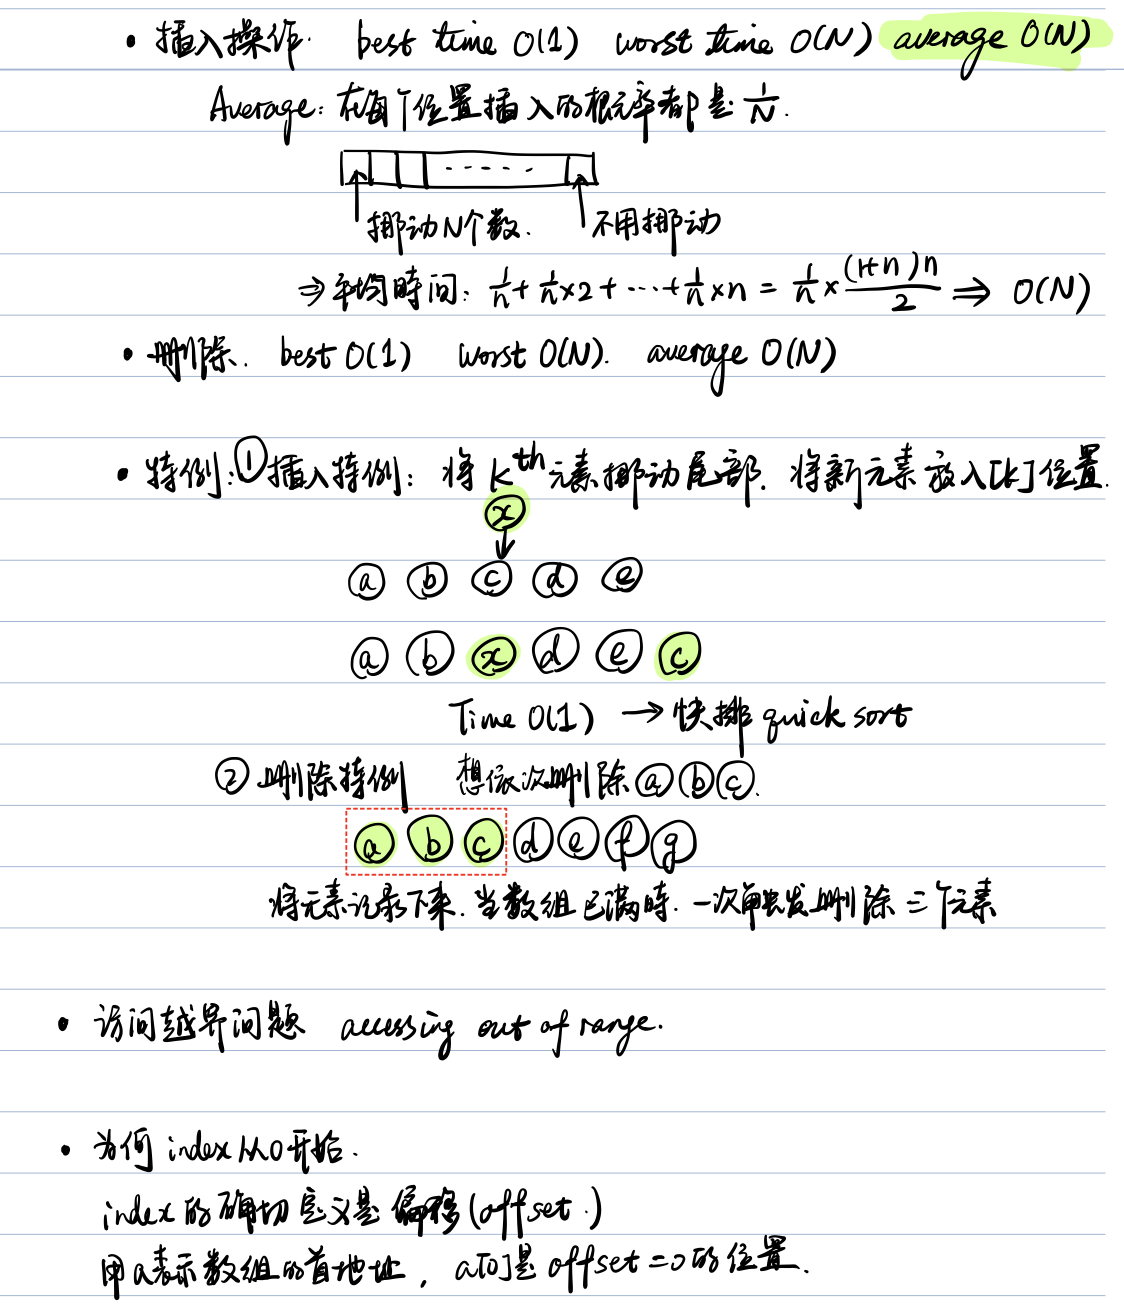 • 插入操作. best time O(1) worst time O(N) average O(N)
Average: 在每个位置插入的概率都是 1/N.
挪动N个数. 不用挪动
⇒ 平均时间: 1/n + 1/n×2 + ··· + 1/n×n = 1/n × (1+n)n/2 ⇒ O(N)
• 删除. best O(1) worst O(N). average O(N)
• 特例: ① 插入特例: 将 kth 元素挪动尾部. 将新元素放入[k]位置.
x
a b c d e
a b x d e c
Time O(1) → 快排 quick sort
② 删除特例 想依次删除 a b c.
a b c d e f g
将元素记录下来. 当数组已满时. 一次触发删除三个元素
• 访问越界问题 accessing out of range.
• 为何 index 从0开始.
index 的确切定义是偏移(offset.)
用a表示数组的首地址, a[0]是 offset=0的位置.